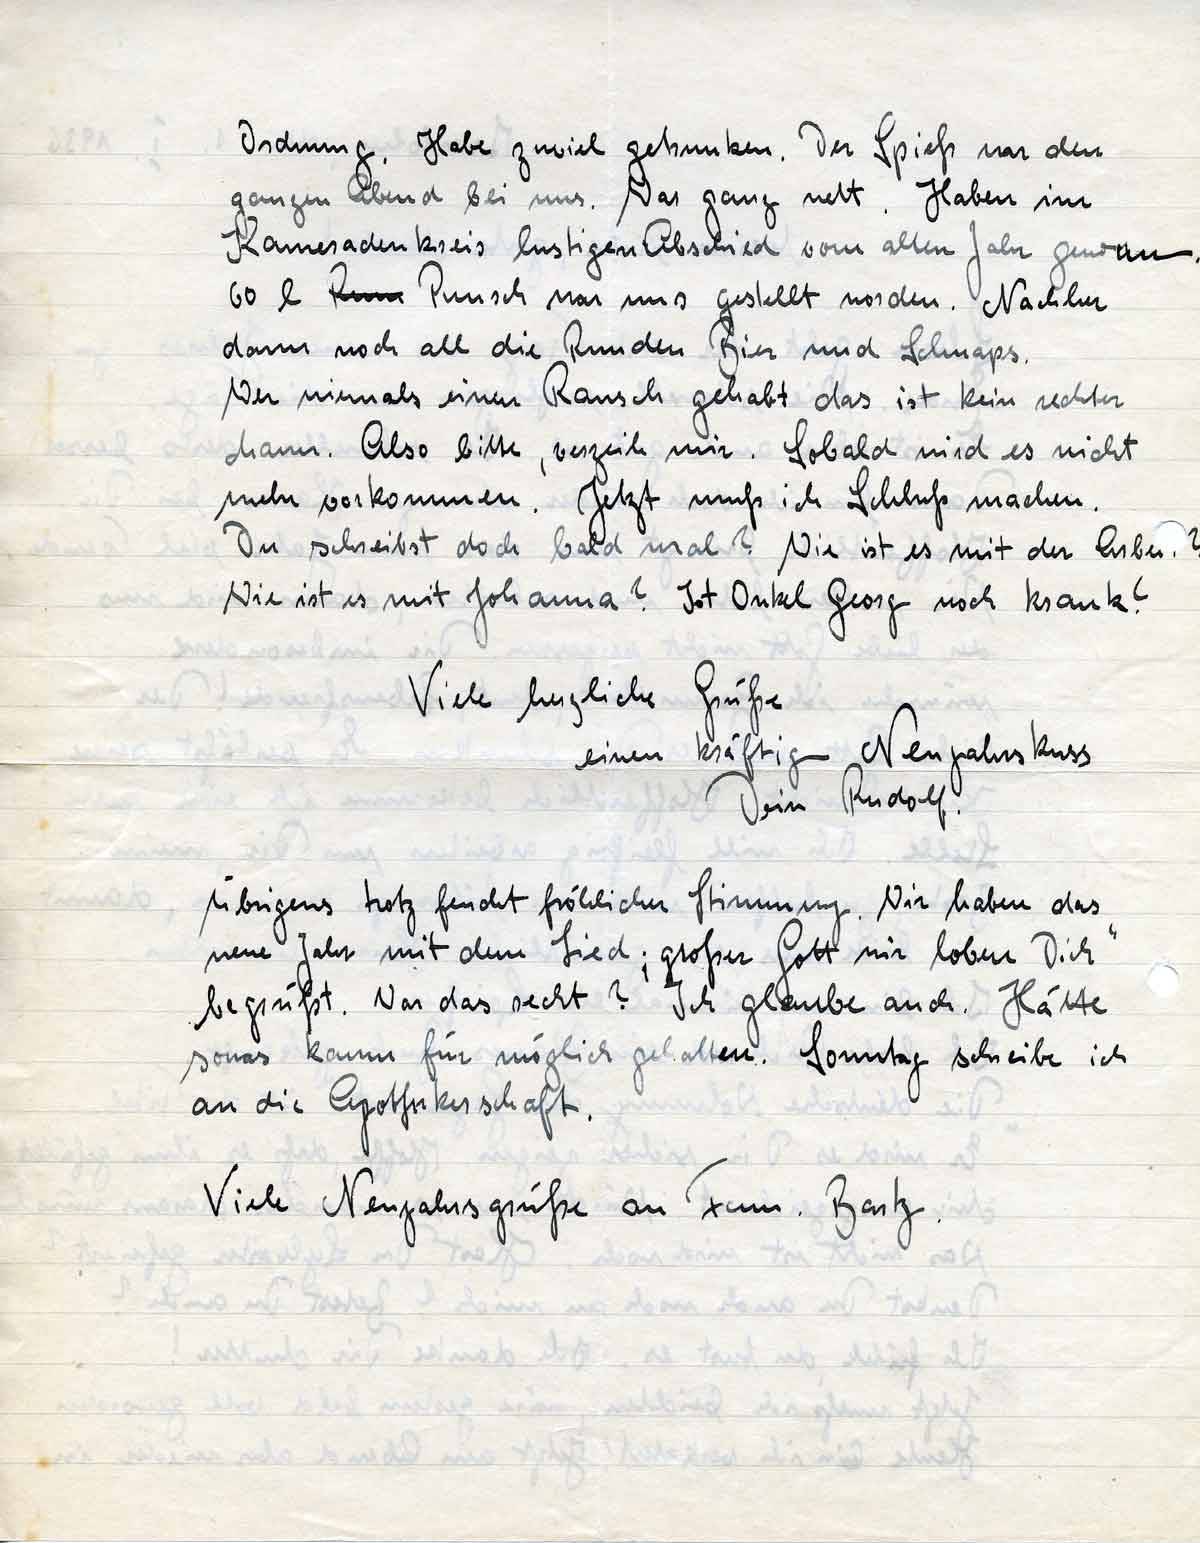 Ordnung. Habe zuviel getrunken. Der Spieß war den
ganzen Abend bei uns. War ganz nett. Haben im
Kameradenkreis lustigen Abschied vom alten Jahr
60 l Punsch war uns gestellt worden. Nachher
dann noch all die Runden Bier und Schnaps.
Wer niemals einen Rausch gehabt das ist kein rechter
Mann. Also bitte, verzeih mir. Sobald wird es nicht
mehr vorkommen. Jetzt muß ich Schluß machen.
Du schreibst doch bald mal? Wie ist es mit der Arbei.?
Wie ist es mit Johanna? Ist Onkel Georg noch krank?
Viele herzliche Grüße
einen kräftig Neujahrskuss
Dein Rudolf.
Übrigens trotz feucht fröhlicher Stimmung. Wir haben das
neue Jahr mit dem Lied „großer Gott wir loben Dich“
begrüßt. War das recht? Ich glaube auch. Hätte
sowas kaum für möglich gehalten. Sonntag schreibe ich
an die Apothekerschaft.
Viele Neujahrsgrüße an Fam. Bartz.